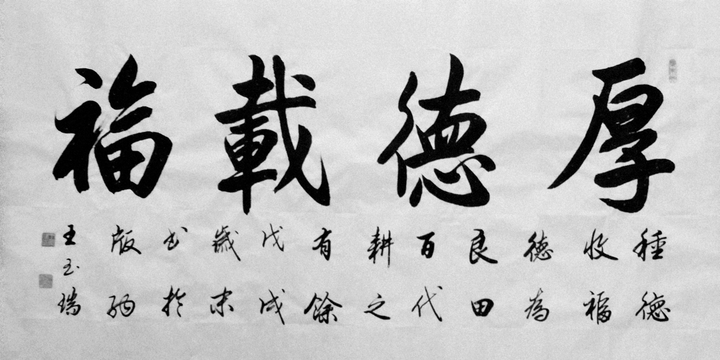 厚德載福
種德
收福
德為
良田
百代
耕之
有餘
戊戌
歲末
书於
版納
王玉瑞